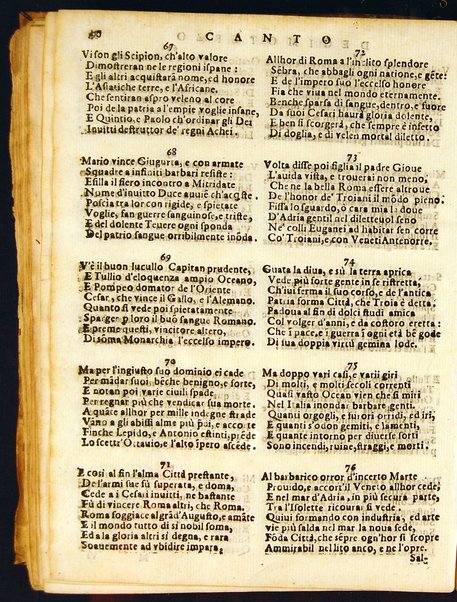 50 CANTO
67
Vi son gli Scipion, ch'alto valore
Dimostreran ne le regioni ispane:
E gli altri acquistarà nome, ed honore
L'Asiatiche terre, e l'Africane.
Che sentiran aspro veleno al core
Poi de la patria a l'empie voglie insane,
E Quintio, e Paolo ch'ordinar gli Dei
Inuitti destruttor de' regni Achei.
68
Mario vince Giugurta, e con armate
Squadre a infiniti barbari resiste:
E silla il fiero incontro a Mitridate
Nome d'inuitto Duce auuiē ch'acq̄ste.
Poscia tra lor con rigide, e spietate
Voglie, fan guerre sanguinose, e triste,
E del dolente Teuere ogni sponda
Del patrio sangue orribilmente inōda.
69
V'è il buon luculio Capitan prudente,
E Tullio d'eloquenza ampio Oceano,
E Pompeo domator de l'Oriente
Cesar, che vince il Gallo, e l'Alemano.
Quanto si vede poi spietatamente
Sparger p loro il buō sangue Romano.
E preme questi, vincitore altero,
Di soma Monarchia l'eccelso impero.
70
Ma per l'ingiusto suo dominio ei cade
Per mādar suoi, bēche benigno, e forte,
E notan poi varie ciuili spade
Per regnar più che vendicar sua morte.
A quāte allhor per mille indegne strade
Vāno a gli abissi alme più pie, e accorte
Finche Lepido, e Antonio estinti, p̄cede
Lo scettr'Ottauio, e l'alto īpero siede.
71
E cosi al fin l'alma Città prestante,
De l'armi sue sù superata, e doma,
Cede a i Cesari inuitti, ne bastante
Fù di vincere Roma altri, che Roma.
Roma soggiace al grād'Augusto, e amāte
E il mondo tutto di si nobil soma,
Ed a la gloria altri si degna, e rara
Soauemente ad vbidire impara.
72
Allhor di Roma a l'īnclito splendore
Sēbra, che abbagli ogni natione, e gēte:
E de l'impero suo l'eccelso honore
Fia che viua nel mondo eternamente.
Benche sparsa di sangue, dentro, e fuore
Da suoi Cesari haurà gloria dolente,
E ben si scorgerà, che sempre è infetto
Di doglia, e di velen mortal diletto.
73
Volta disse poi figlia il padre Gioue
L'auida vista, e trouerai non meno,
Che ne la bella Roma essere altroue
De l'honor de' Troiani il mōdo pieno.
Fissa lo sguardo, ò cara mia là doue
D'Adria gentil nel dilettcuol seno
Ne' colli Euganei ad habitar sen corte
Co' Troiani, e con Veneti Antenorre.
74
Guata la diua, e sù la terra aprica
Vede più sorte gente in se ristretta,
Ch'iui ferma il suo corso, e de l'antica
Patria forma Città, che Troia è detta
Padoua al fin di dolci studi amica
Col volger d'anni, e da costoro eretta:
Che ī pace, e ī guerra ī ogni età bē gode
Di sua doppia virtù gemina lode.
75
Ma doppo vari casi, e varii giri
Di molti, e molti secoli correnti
Quasi vasto Ocean vien che si miri
Nel Italia inondar barbare genti.
Quanti orgogli, e furori orridi, ed iri,
E quanti s'odon gemiti, e lamenti,
E quante intorno per diuerse sorti
Sono incendi, ruine, straggi, e morti.
76
Al barbarico orror d'incerto Marte
Prouido, e accort'il Veneto allhor cede,
E nel mar d'Adria, in più secura parte,
Tra l'Isolette ricourar si vede.
Quiui formando con industria, ed arte
vie più salda nel mar la noua sede,
Fōda Città, che sēpre ogn'hor si scopre
Ammirabil nel lito anco, e ne l'opre.
Sal-